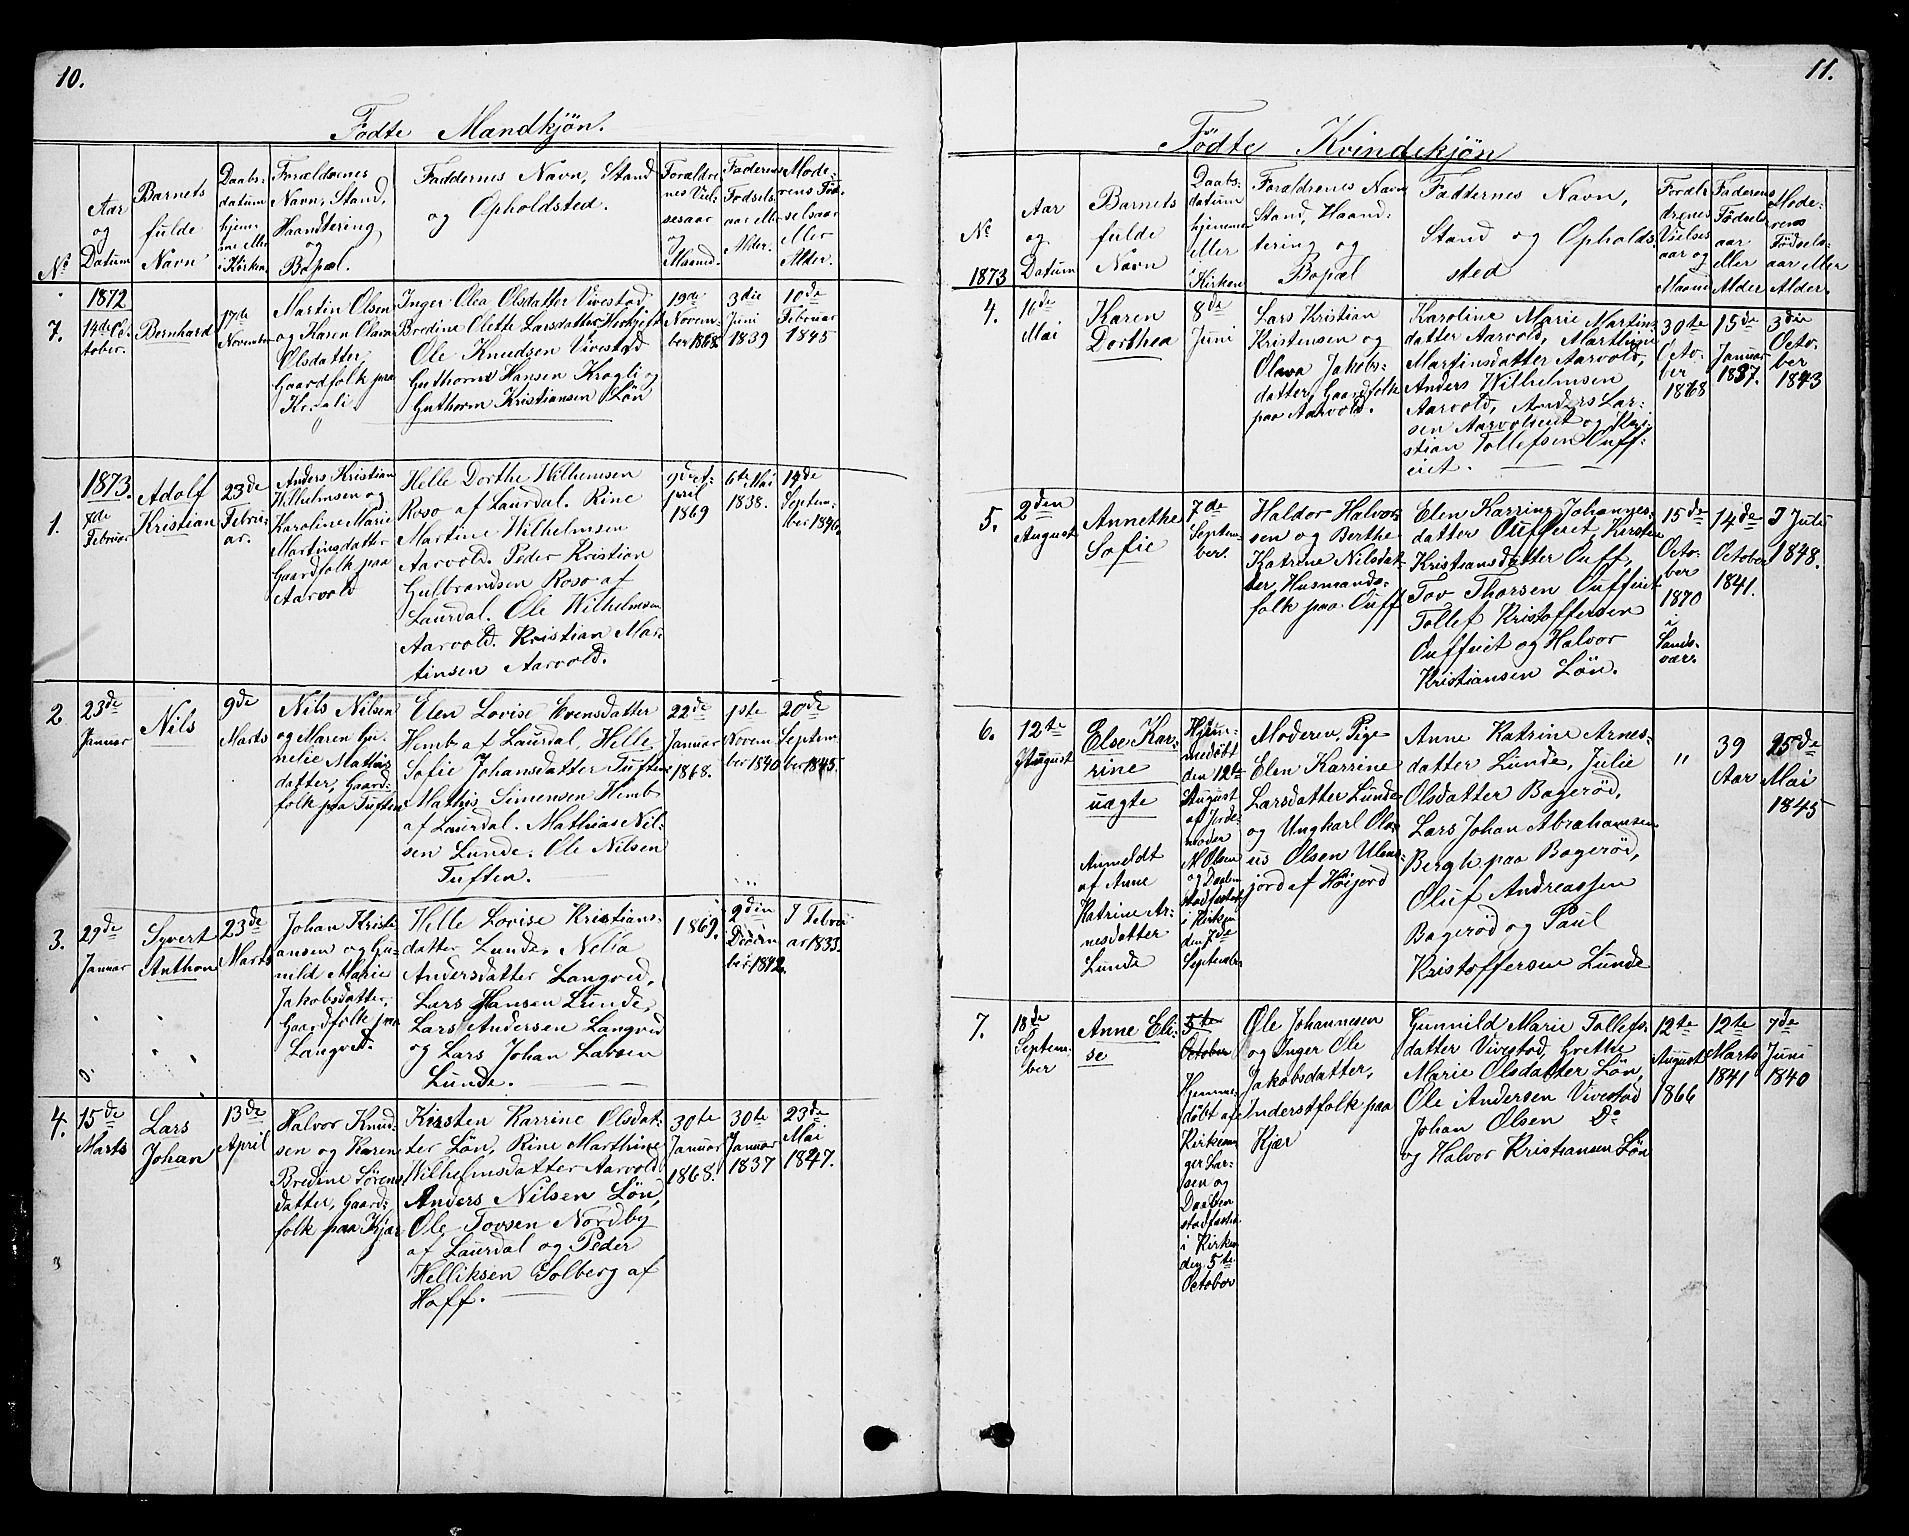 10.
Fødte Mandkjøn.
No
Aar
og
Datum
Barnets
fulde
Navn
Daabs-
datum
hjemme
eller
i Kirken
Forældrenes
Navn, Stand,
Haandtering
og
Bopæl.
Faddernes Navn, Stand
og Opholdsted.
Forældre-
nes Viel-
sesaar
og
Maaned.
Faderens
Fødsels-
aar eller
Alder.
Mode-
rens Fød-
selsaar
eller
Alder.
7.
1872
14de Oc-
tober.
Bernhard
17de
November
Martin Olsen
og Karen Olava
Olsdatter
Gaardfolk paa
Inger Olea Olsdatter Vivestad
Bredine Olette Larsdatter
Ole Knudsen Vivestad
Guthorm Hansen Krogli og
Guthorm Kristiansen Løn
19de
Novem-
ber 1868.
3die
Juni
1839
10de
Februar
1845
1.
1873.
8de
Februar
Adolf
Kristian
23de
Febru-
ar.
Anders Kristian
Wilhelmsen og
Karoline Marie
Martinsdatter
Gaardfolk paa
Aarvold
Helle Dorthe Wilhemsen
Roso af Laurdal. Rine
Martine Wilhelmsen
Aarvold. Peder Kristian
Gulbrandsen Roso af
Laurdal. Ole Wilhelmsen
Aarvold. Kristian Mar-
tinsen Aarvold.
9de A-
pril
1869
6te Mai
1838.
14de
Septem-
ber 1846.
2
23de
Januar
Nils
9de
Marts
Nils Nilsen
og Maren Gu-
nelie Mathis
datter, Gaard-
folk paa Tuften
Elen Lovise Evensdatter
Hemb af Laurdal, Helle
Sofie Johansdatter Tuften
Mathis Simensen Hemb
af Laurdal. Mathias Nil-
sen Lunde. Ole Nilsen
Tuften.
22de
Januar
1868.
1ste
Novem
ber 1840
20de
Septem
ber 1845.
3.
29de
Januar
Syvert
Anthon
23de
Marts
Johan Kristi-
ansen og Gu-
nild Marie
Jakobsdatter,
Gaardfolk paa
Langved.
Helle Lovise Kristians-
datter Lunde, Nelia
Andersdatter Langved,
Lars Hansen Lunde,
Lars Andersen Langved
og Lars Johan Larsen
Lunde.
1869.
2den
Decem-
ber 1842.
I Febru-
ar 1833.
4.
15de
Marts
Lars
Johan
13de
April
Halvor Knud-
sen og Karen
Bredine Sørens
datter, Gaard-
folk paa Kjær
Kirsten Karrine Olsdat-
ter Løn, Rine Marthine
Wilhelmsdatter Aarvold
Anders Nilsen Løn,
Ole Tovsen Nordby
af Laurdal og Peder
Helliksen Solberg af
Hoff.
30te
Januar
1868.
30te
Januar
1837
23de
Mai
1847.
11.
Fødte Kvindekjøn
No
1873
Aar
og
Datum
Barnets
fulde
Navn
Daabs-
datum
hjemme
eller
i Kirken
Forældrenes Navn
Stand, Haand-
tering og
Bopæl
Faddernes Navn,
Stand og Opholds
sted
Foræl-
drenes
Vielses
aar og
Maaned
Faderens
Fødsels
aar
eller
Alder
Mode-
rens
Fødsels-
aar eller
Alder.
4.
16de
Mai
Karen
Dorthea
8de
Juni
Lars Kristian
Kristensen og
Olava Jakobs-
datter, Gaardfolk
paa Aarvold.
Karoline Marie Martins-
datter Aarvold, Marthine
Martinsdatter Aarvold,
Anders Wilhelmsen
Aarvold, Anders Lar-
sen Aarvolseiet og Kri-
stian Tollefsen Ouff-
eiet.
30te
Octo-
ber
1868
15de
Januar
1837.
3die
Octo-
ber
1843
5.
2den
August
Annethe
Sofie
7de
Septem
ber.
Haldor Halvor-
sen og Berthe
Katrine Nilsdat-
ter, Husmands-
folk paa Ouff
Elen Karrine Johannes-
datter Ouffeiet, Kirsten
Kristiansdatter Ouff,
Tov Thorsen Ouffeiet
Tollef Kristoffersen
Ouffeiet og Halvor
Kristiansen Løn.
15de
Octo-
ber
1870
i
Sands-
vær.
14de
October
1841.
I Juli
1848.
6.
12te
August
Else Kar-
rine
uægte
Anmeldt
af Anne
Katrine Ar-
nesdatter
Lunde
Hjem-
medøbt
den 12te
August
af Jorde-
moder
M. Olsen
og Daaben
stadfæstet
i Kirken
den 7de
September
Moderen, Pige
Elen Karrine
Larsdatter Lunde
og Ungkarl Ola-
us Olsen Ulens-
jord af Høijord
Anne Katrine Arnes-
datter Lunde, Julie
Olsdatter Bagerød,
Lars Johan Abrahamsen
Bergh paa Bagerød,
Oluf Andreassen
Bagerød og Paul
Kristoffersen Lunde
"
39
Aar
25de
Mai
1845
7.
18de
Septem-
ber
Anne Eli-
se
5te
October
Hjemme-
døbt af
Kirkesan-
ger Lar-
sen og
Daaben
stadfæstet
i Kirken
den 5te
October
Ole Johannesen
og Inger Ole
Jakobsdatter,
Inderstfolk paa
Kjær
Gunnild Marie Tollefs-
datter Vivestad, Grethe
Marie Olsdatter Løn,
Ole Andersen Vivestad
Johan Olsen Do
og Halvor Kristiansen Løn
12te
August
1866
12te
Marts
1841
7de
Juni
1840